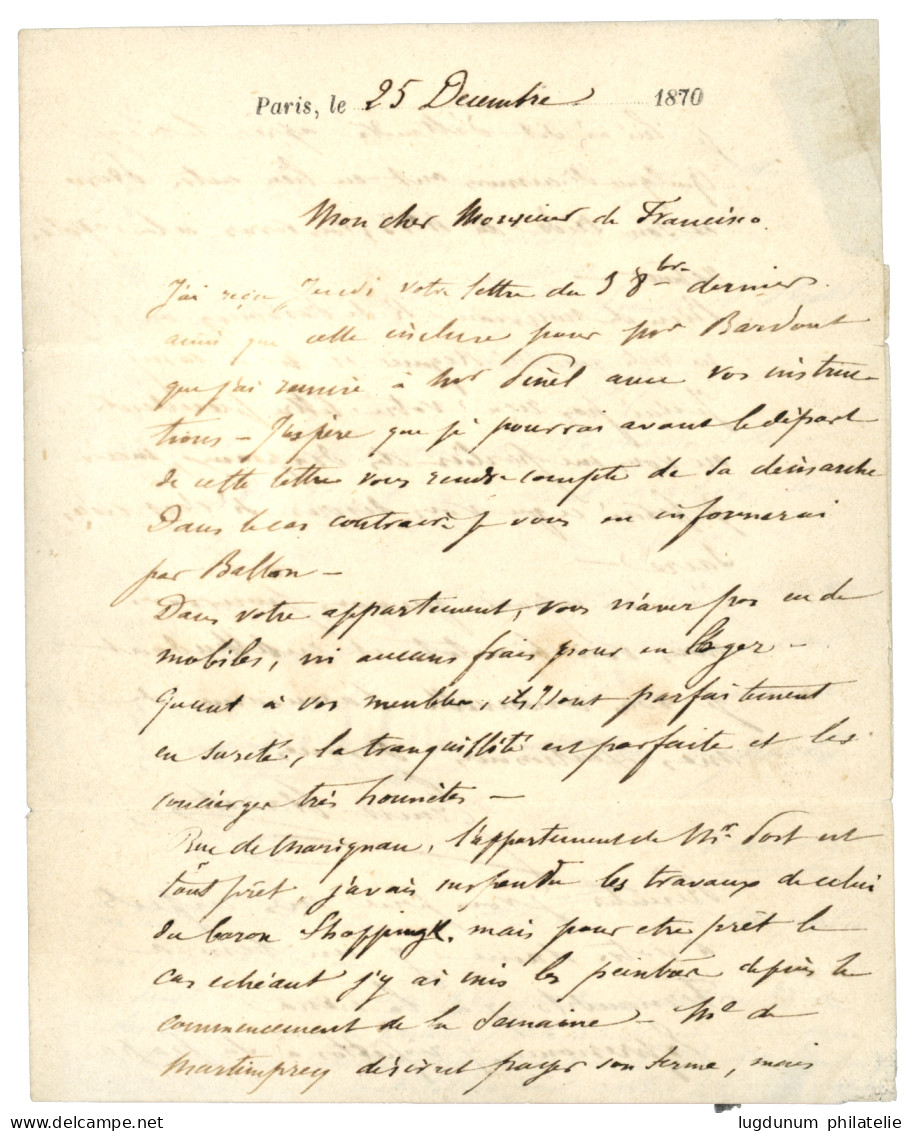 Paris, le 25 Decembre 1870
Mon cher Monsieur de Francisco.
J'ai reçu Jeudi votre lettre du 3 8bre dernier
ainsi que celle incluse pour Mr Bardout
que j'ai remise à Mr Pinel avec vos instruc-
tions - J'espère que je pourrai avant le départ
de cette lettre vous rendre compte de sa démarche
Dans le cas contraire je vous en informerai
par Ballon -
Dans votre appartement, vous n'avez pas eu de
mobiles, ni aucuns frais pour en loger -
Quant à vos meubles, ils sont parfaitement
en sureté, la tranquillité est parfaite et les
concierges très honnêtes -
Rue de Marignan, l'appartement de Mr Post est
tout prêt, j'avais suspendu les travaux de celui
du baron mais pour etre prêt le
cas echéant j'y ai mis les peintres depuis le
commencement de la Semaine - Me de
Martimprey désirait payer son terme, mais
lugdunum philatelie